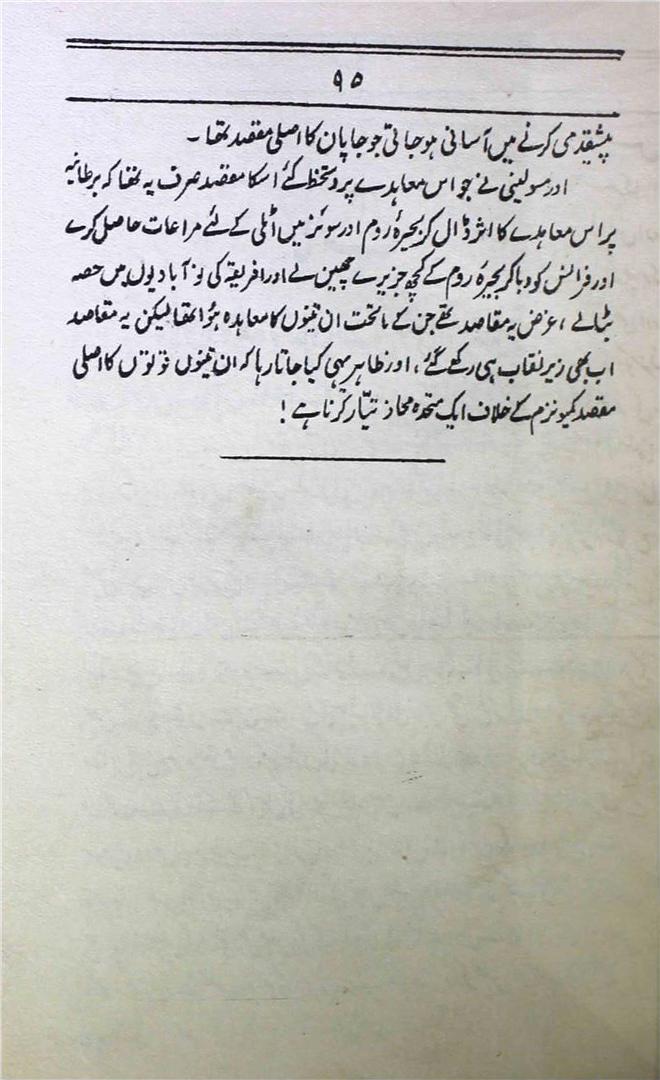 ۹۵
پیشقدمی کرنے میں آسانی ہوجاتی جو جاپان کا اصلی مقصد تھا۔
اور مسولینی نے جو اس معاہدے پر دستخط کئے اسکا مقصد صرف یہ تھا کہ برطانیہ
پر اس معاہدے کا اثر ڈال کر بحیرۂ روم اور سوئز میں اٹلی کے لئے مراعات حاصل کرے
اور فرانس کو دبا کر بحیرۂ روم کے کچھ جزیرے چھین لے اور افریقہ کی نو آبادیوں میں حصہ
بٹالے، غرض یہ مقاصد تھے جن کے ماتحت ان تینوں کا معاہدہ ہوا تھا لیکن یہ مقاصد
اب بھی زیر نقاب ہی رکھے گئے، اور ظاہر یہی کیا جاتا رہا کہ ان تینوں قوتوں کا اصلی
مقصد کمیونزم کے خلاف ایک متحدہ محاذ تیّار کرنا ہے!